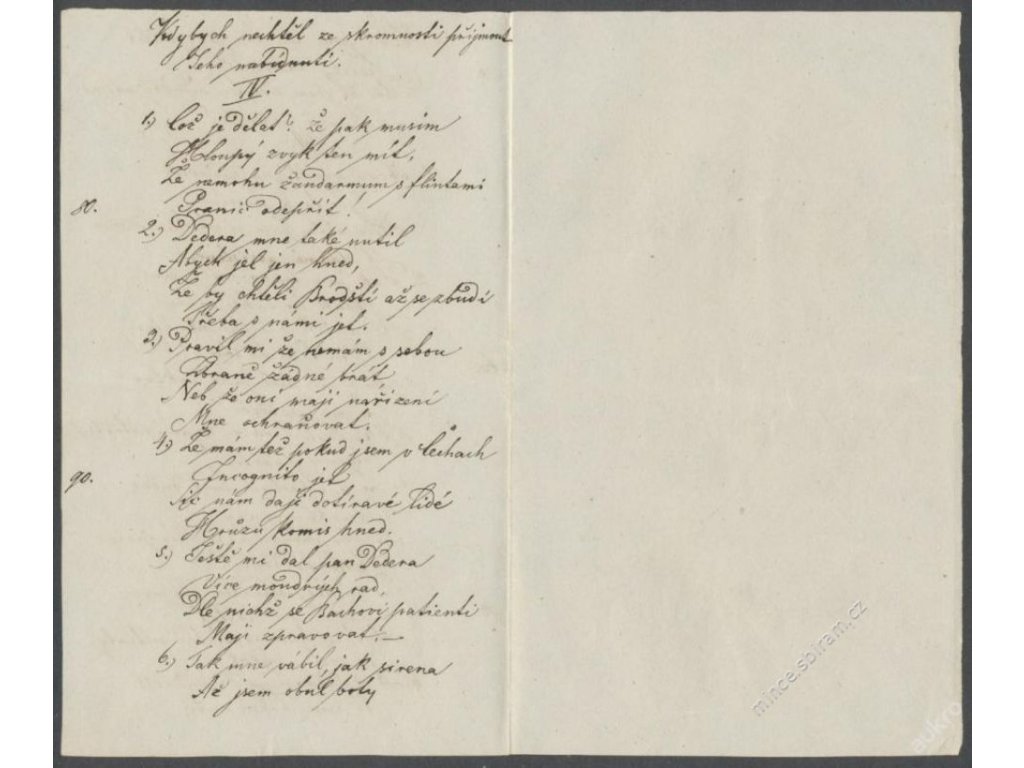 Kdybych nechtěl ze skromnosti přijmout
Jeho nabídnutí.
IV.
1.) Což je dělat? že pak musím
Hloupý zvyk ten mít,
Že nemohu žandarmum s flintami
80. Pranic odepřít!
2.) Dedera mne také nutil
Abych jel jen hned,
Že by chtěli Brodští až se zbudí
Třeba s námi jet.
3.) Pravil mi že nemám s sebou
Zbraně žádné brát
Neb že oni mají nařízení
Mne ochraňovat.
4.) Že mám též pokud jsem v Čechách
90. Incognito jet
Sic nám dají dotíravé lidé
Hrůzu komis hned.
5.) Ještě mi dal pan Dedera
Více moudrých rad,
Dle nichž se Bachovi patienti
Mají zpravovat. —
6.) Tak mne vábil, jak sirena
Až jsem obul boty
mince.sbiram.cz
aukro